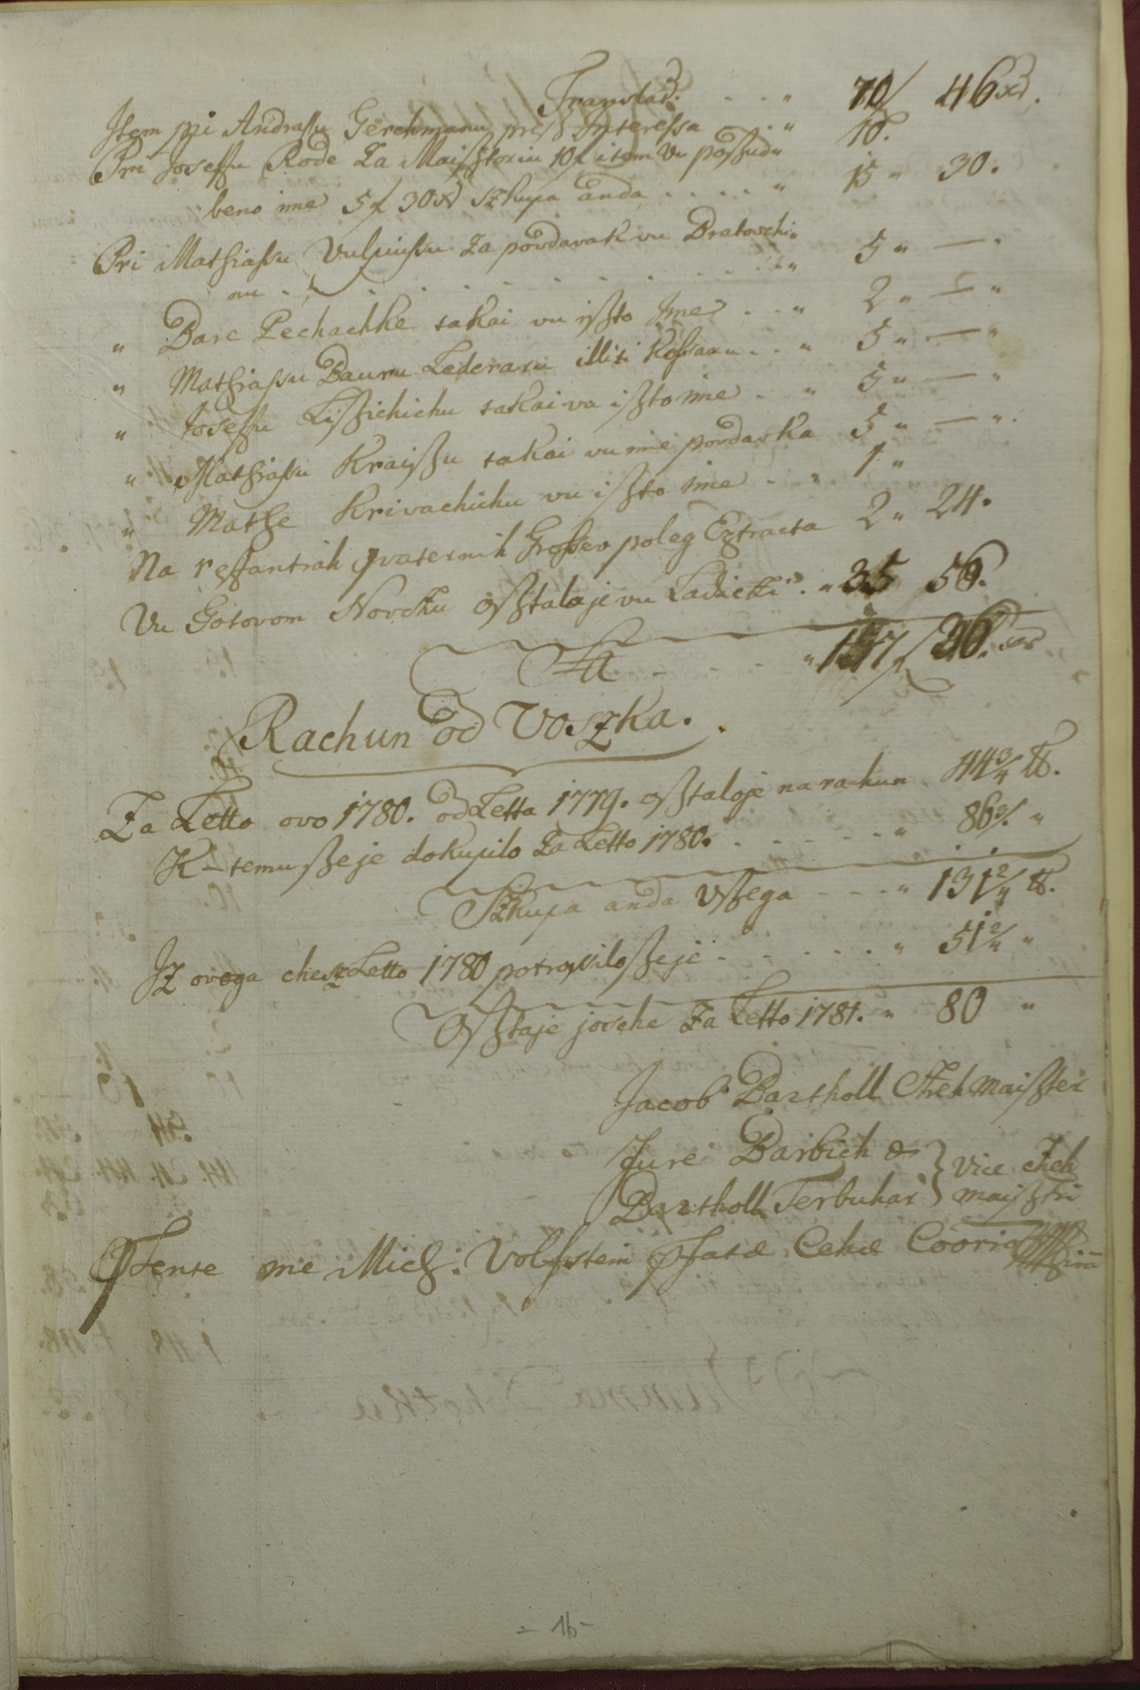 Translat: . . . " 70 f 46 xr.
Item pri Andrassu Gerchmanu prez Interessa . " 10.
Pri Joseffu Rode Za Maißtoriu 10 f item Vu poßud"
beno ime 5 f 30 xr szkupa anda . . . . . " 15 " 30.
Pri Mathiassu Vulpiussu Za povdavak vu Bratovchi"
nu . . . . . . . . . . " 5 " — .
" Bare Pechachke takai vu ißto Ime . . " 2 " — "
" Mathiassu Bauru Lederaru illiti . . " 5 " — "
" Joseffu Lißichichu takai vu ißto ime . . " 5 " — "
" Mathiassu Kraißu takai vu ime povdavka 5 " — " .
" Mathe Krivachichu vu ißto ime . . " 1 "
Na restantiah quaternih Großev poleg Extracta 2 " 24.
Vu Gotovom Novchu oßtalo je vu Ladichi . " 35 56.
Sa . . . . . " 157 f 36. xr
Rachun od Voszka.
Za Letto ovo 1780. od Letta 1779. oßtaloje na rachun 44 3/4 ℔.
K-temu ße je dokupilo Za Letto 1780. . . . . . . " 86 3/4 "
Szkupa anda vßega - - - " 131 2/4 ℔.
Iz ovoga chez Letto 1780 potroßilo ße je . . . . . . . " 51 2/4 "
Oßtaje josche Za Letto 1781. " 80 "
Jacob Bartholl Chehmaißter
Jure Barbich &
Bartholl Terbuhar } Vice Zeh
maißtri
Teste me Mich: Volfstein Cehæ
- 16 -